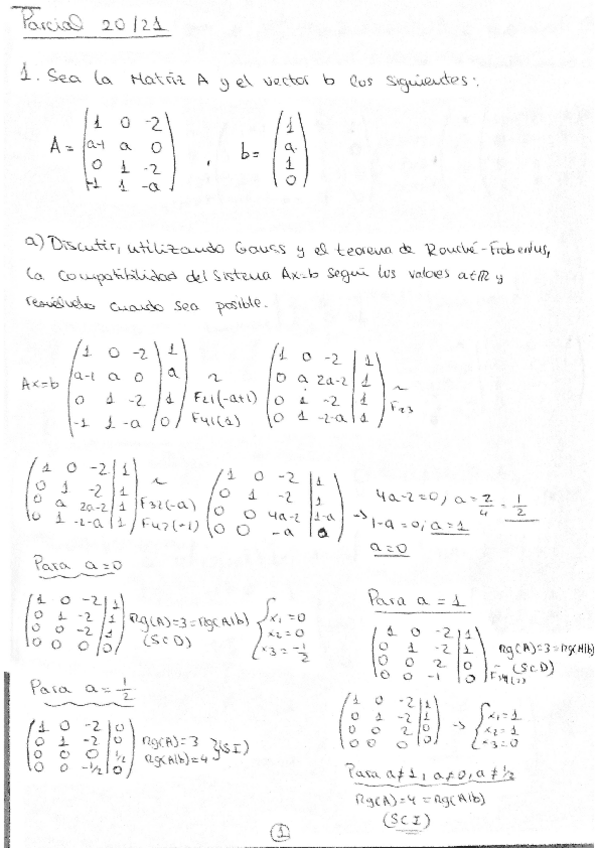 Parcial 20/21
1. Sea la Matriz A y el vector b los siguientes:
A = (1 0 -2; a-1 a 0; 0 1 -2; -1 1 -a) , b = (1; a; 1; 0)
a) Discutir, utilizando Gauss y el teorema de Rouché-Frobenius,
la compatibilidad del sistema Ax=b según los valores a∈R y
resuélvelo cuando sea posible.
Ax=b (1 0 -2 | 1; a-1 a 0 | a; 0 1 -2 | 1; -1 1 -a | 0) ~ F21(-a+1) F41(1) (1 0 -2 | 1; 0 a 2a-2 | 1; 0 1 -2 | 1; 0 1 -2-a | 1) ~ F23
(1 0 -2 | 1; 0 1 -2 | 1; 0 a 2a-2 | 1; 0 1 -2-a | 1) ~ F32(-a) F42(-1) (1 0 -2 | 1; 0 1 -2 | 1; 0 0 4a-2 | 1-a; 0 0 -a | 0) → 4a-2=0, a=2/4=1/2
1-a=0; a=1
a=0
Para a=0
(1 0 -2 | 1; 0 1 -2 | 1; 0 0 -2 | 1; 0 0 0 | 0) Rg(A)=3=Rg(A|b) (SCD) { x1=0 x2=0 x3=-1/2
Para a=1/2
(1 0 -2 | 0; 0 1 -2 | 0; 0 0 0 | 1/2; 0 0 -1/2 | 0) Rg(A)=3 Rg(A|b)=4 } (SI)
Para a = 1
(1 0 -2 | 1; 0 1 -2 | 1; 0 0 2 | 0; 0 0 -1 | 0) Rg(A)=3=Rg(A|b) (SCD)
(1 0 -2 | 1; 0 1 -2 | 1; 0 0 2 | 0; 0 0 0 | 0) → { x1=1 x2=1 x3=0
Para a≠1, a≠0, a≠1/2
Rg(A)=4=Rg(A|b)
(SCI)
1